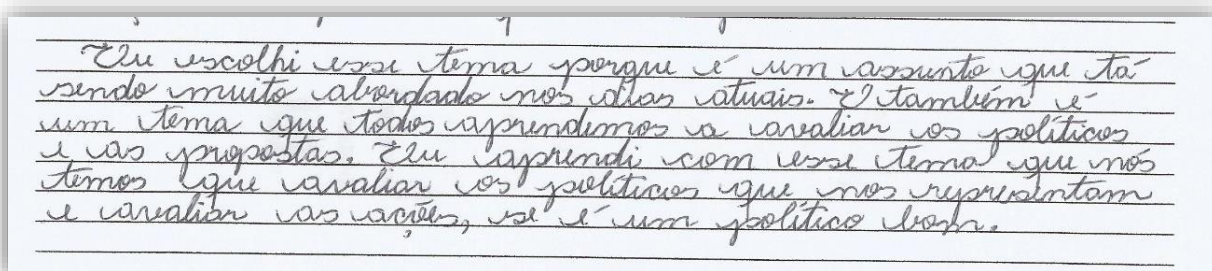 Eu escolhi esse tema porque é um assunto que tá
sendo muito abordado nos dias atuais. E também é
um tema que todos aprendemos a avaliar os políticos
e as propostas. Eu aprendi com esse tema que nós
temos que avaliar os políticos que nos representam
e avaliar as ações, se é um político bom.